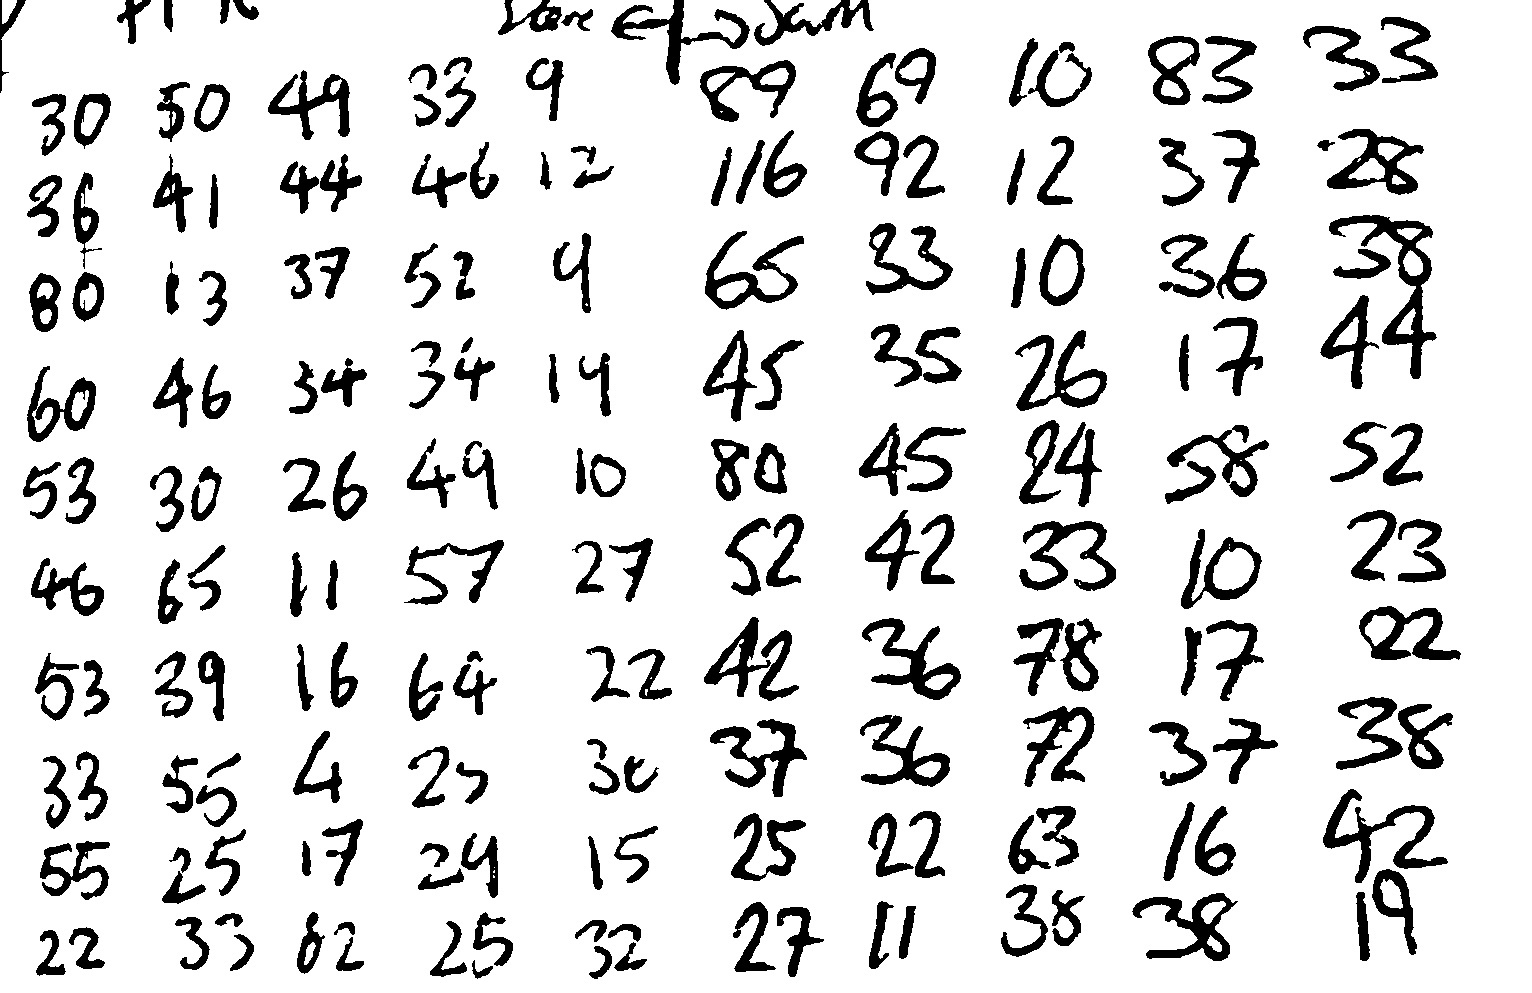 30 50 49 33 9 89 69 10 83 33
36 41 44 46 12 116 92 12 37 28
80 13 37 52 9 65 33 10 36 38
60 46 34 34 14 45 35 26 17 44
53 30 26 49 10 80 45 24 58 52
46 65 11 57 27 52 42 33 10 23
53 39 16 64 22 42 36 78 17 22
33 55 4 25 30 37 36 72 37 38
55 25 17 24 15 25 22 63 16 42
22 33 82 25 32 27 11 38 38 19